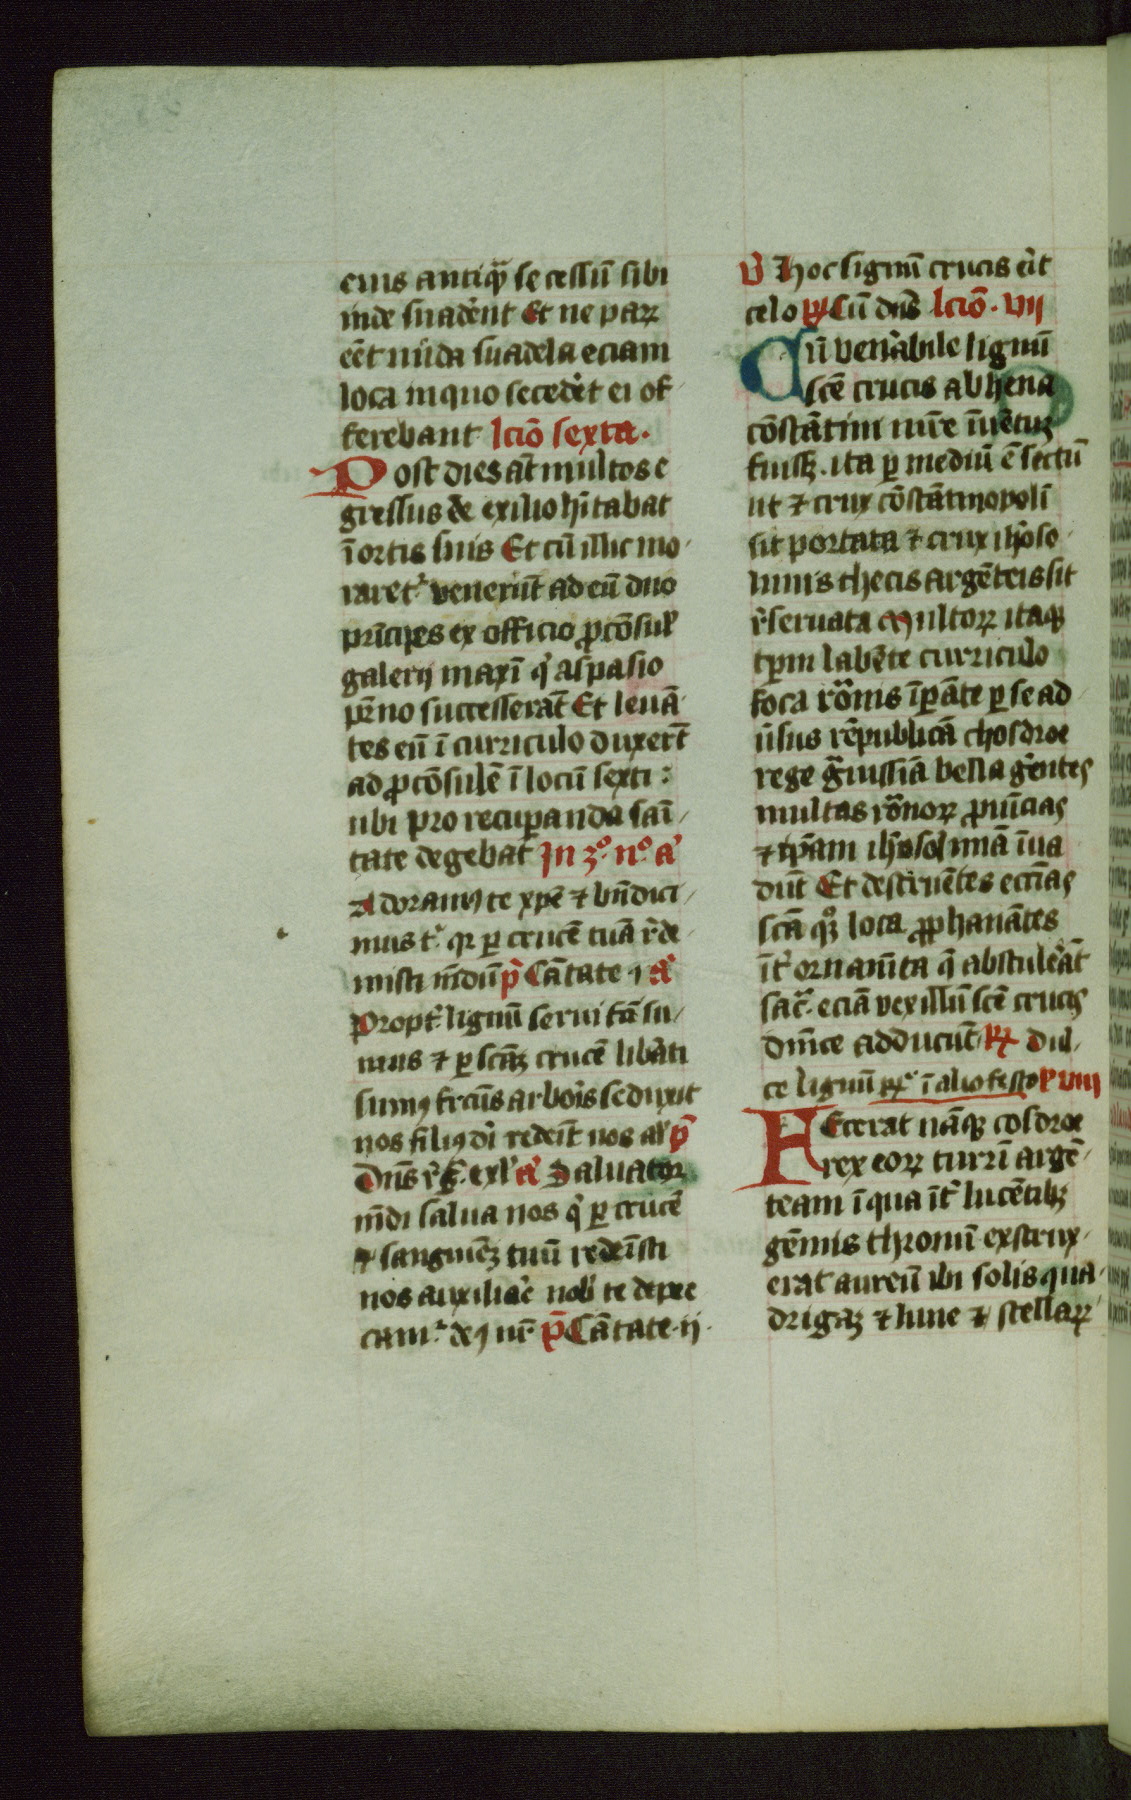 eius antiq̄ secessū sibi
inde suadēnt Et ne parꝝ
eēt nuda suadela eciam
loca in quo secedēt ei of
ferebant lcīo sexta.
Post dies at̄ multos e
gressus de exilio hītabat
ī ortis suis Et cū illic mo
raret᷑ venerūt ad eū duo
prīcipes ex officio ꝓcōsul᷑
galerij maxī q᷑ aspasio
pr̄no successerāt Et leuā
tes eū ī curriculo duxerūt
ad ꝓcōsulē ī locū sexti :
ubi pro recuꝑanda sāī
tate degebat Jn 3º nº a᷑
Adoramꝯ te xp̄e ⁊ bn̄dici
mus t᷑ qꝛ ꝑ crucē tuā r᷑de
misti mūdū p̄ Cātate i a᷑
Propt᷑ lignū serui fc̄i su
mus ⁊ ꝑ sctā crucē lib᷑ati
sumꝯ fructꝰ arbor᷑is seduxit
nos filiꝯ di᷑ redeīt nos al᷑ p̄
Dn̄s r᷑ḡ. exl᷑ a᷑ Saluator
mūdi salua nos q᷑ ꝑ crucē
⁊ sanguinē tuū redeīsti
nos auxiliar᷑e nob᷑ te depre
cam᷑ deꝯ nr̄ p̄ Cātate ij
v᷑ Hoc signū crucis er᷑it
celo ꝶ Cū dn̄s lcīo. vij
Cū ven᷑abile lignū
scē crucis ab hena
cōstātini mr̄e īuētuꝫ
fuissꝫ. ita ꝑ mediū ē sectū
ut ⁊ crux cōstātinopolī
sit portata ⁊ crux ih̄oso
limis thecis argēteis sit
r᷑seruata Multorꝝ itaqꝫ
tp̄m labēte curriculo
foca rōnis īꝑāte ꝑ se ad
ūsus rēpublicā chosdroe
rege g᷑uissiā bella ger᷑entes
multas rōnorꝝ ꝓuīcias
⁊ ip̄am ih̄osolimā īua
dūt Et destruētes eccīas
scā qꝫ loca ꝓphanātes
īt᷑ ornamīta q̄ abstuler᷑āt
sac᷑. eciā vexillū scē crucis
dn̄ice adducūt ꝶ Dul
ce lignū ꝶ ī alio festo l᷑ viij
FEcerat nāqꝫ cosdroe
rex eorꝝ turrī argē
team ī qua īt᷑ lucētibꝫ
gēmis thronū exstrux
erat aureū ibi solis qua
drigāꝫ ⁊ lune ⁊ stellarꝝ